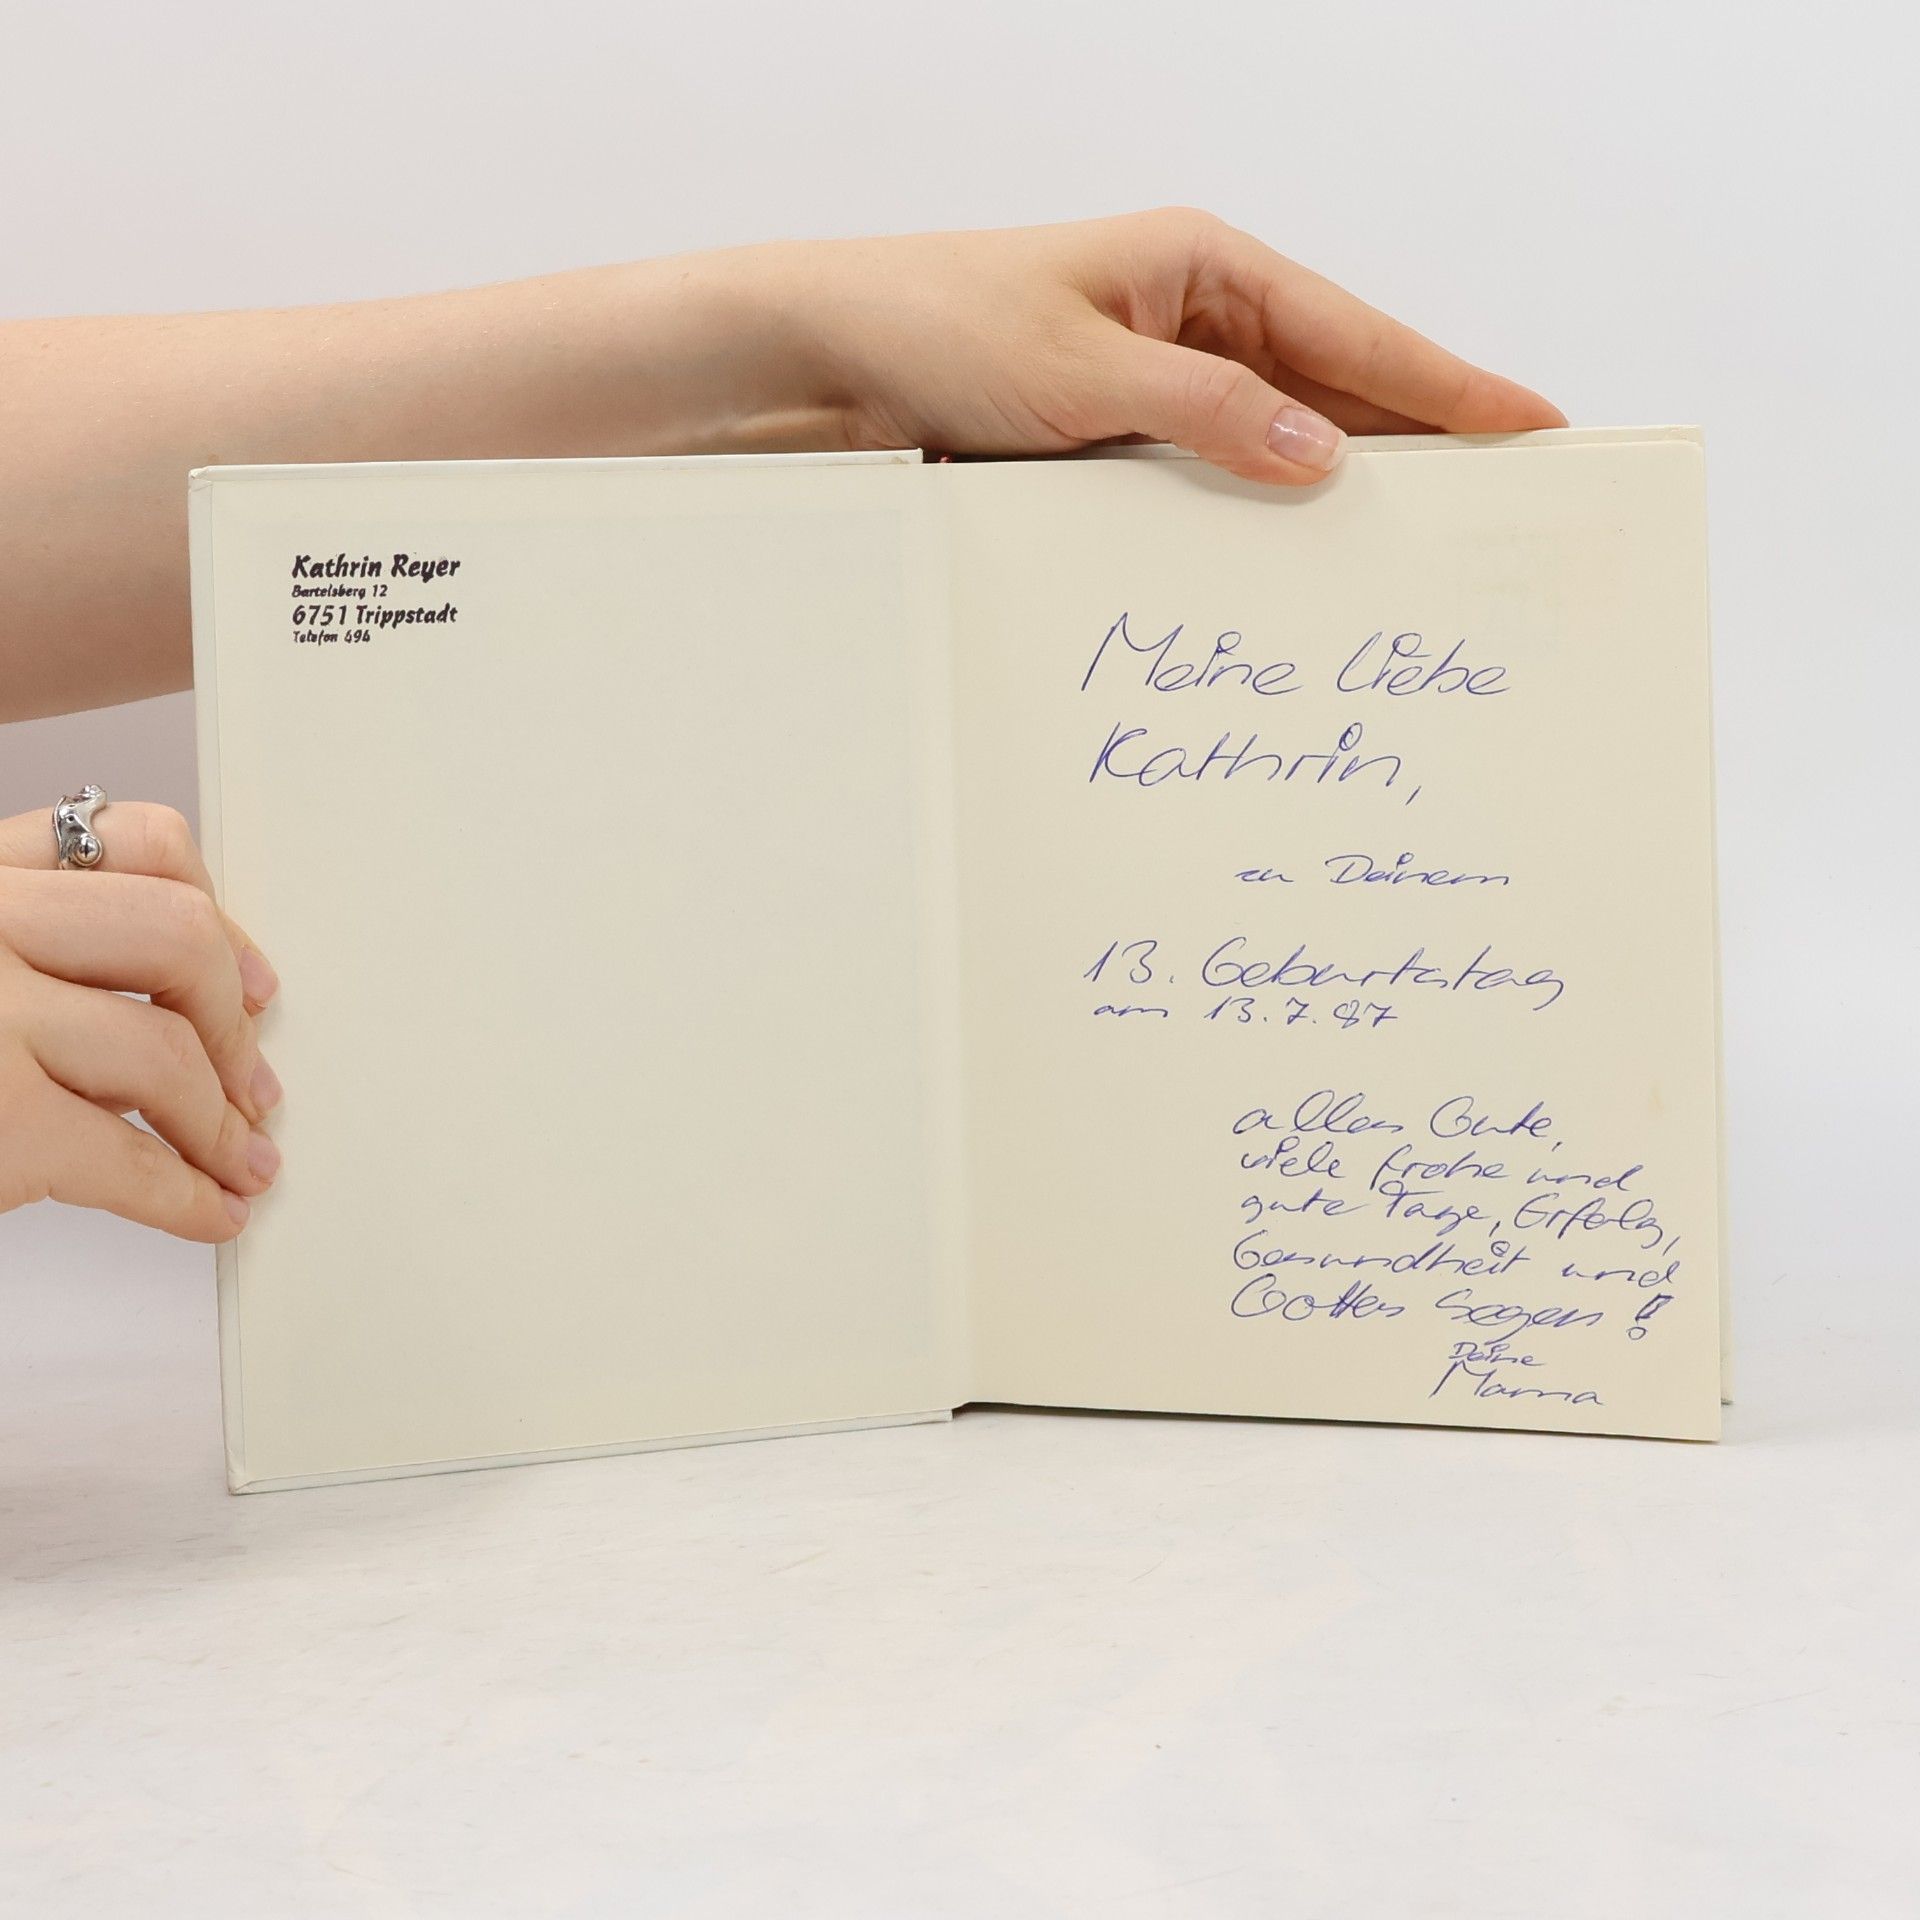 Kathrin Reyer
Bartelsberg 12
6751 Trippstadt
Telefon 494
Meine liebe
Kathrin,
zu Deinem
13. Geburtstag
am 13.7.87
alles Gute,
viele frohe und
gute Tage, Erfolg,
Gesundheit und
Gottes Segen!
Deine
Mama